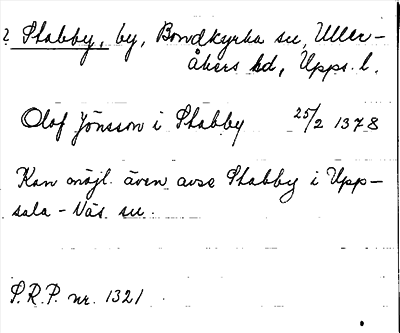 ? Stabby, by, Bondkyrka sn, Uller-
åkers hd, Upps. l.
Olof Jönsson i Stabby 25/2 1378
Kan möjl. även avse Stabby i Upp-
sala-Näs sn.
S.R.P. nr. 1321